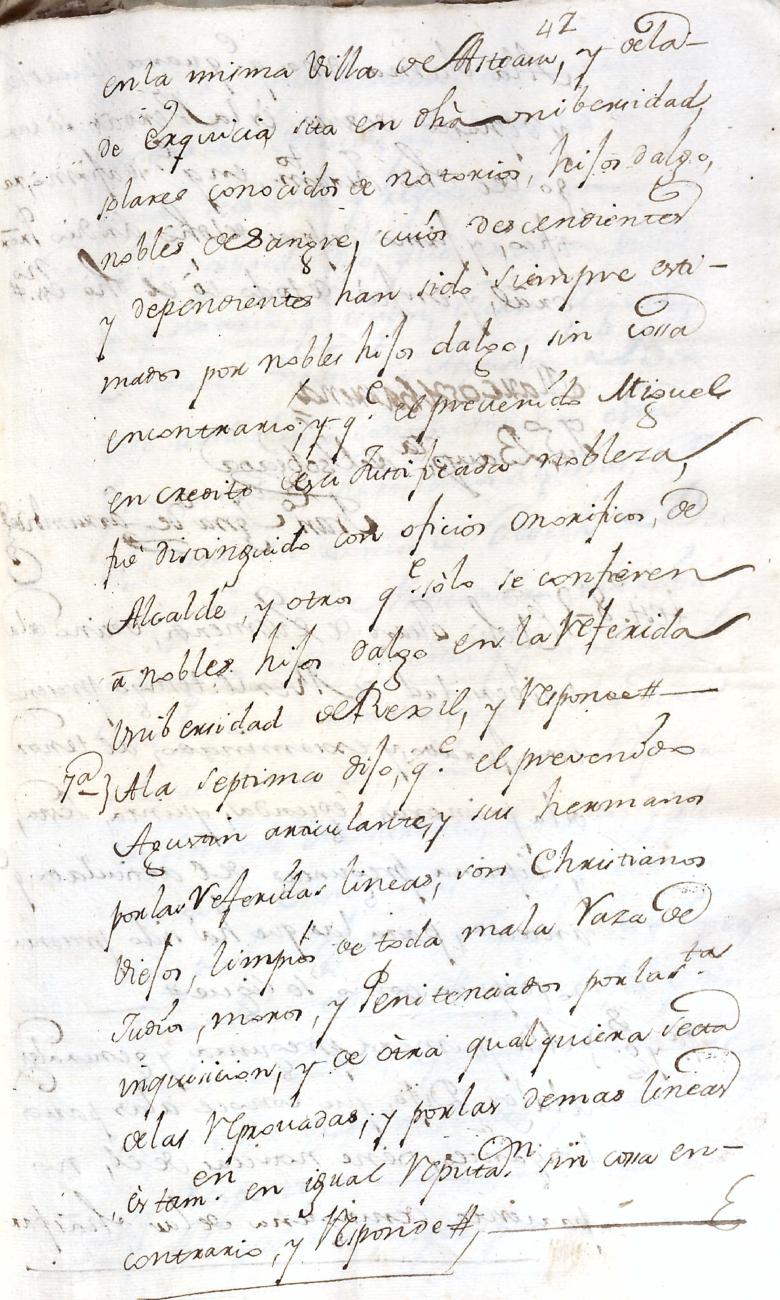 42
en la misma Villa de Asteasu, y de la-
de Erquicia sita en dhâ unibersidad,
solares conocidos de notorios, hijos dalgo,
nobles, de Sangre, cuios descendientes
y dependientes han sido siempre esti-
mados por nobles hijos dalgo, sin cossa
encontrario, y q.e el prevenido Miguel
en credito de su Justificada nobleza,
fue distinguido con oficios onorificos, de
Alcalde, y otros q.e solo se confieren
â nobles hijos dalgo en la Referida
Unibersidad de Rexil, y Responde #
7.a} A la septima dijo, q.e el prevenido
Agustin articulante, y su hermano
por las Referidas lineas, son Christianos
Viejos, limpios de toda mala Raza de
Judios, moros, y Penitenciados por la s.ta
inquisicion, y de ôtra qualquiera secta
de las Reprouadas, y por las demas lineas
êstam.en en igual Reputa.on sin cossa en-
contrario, y Responde #